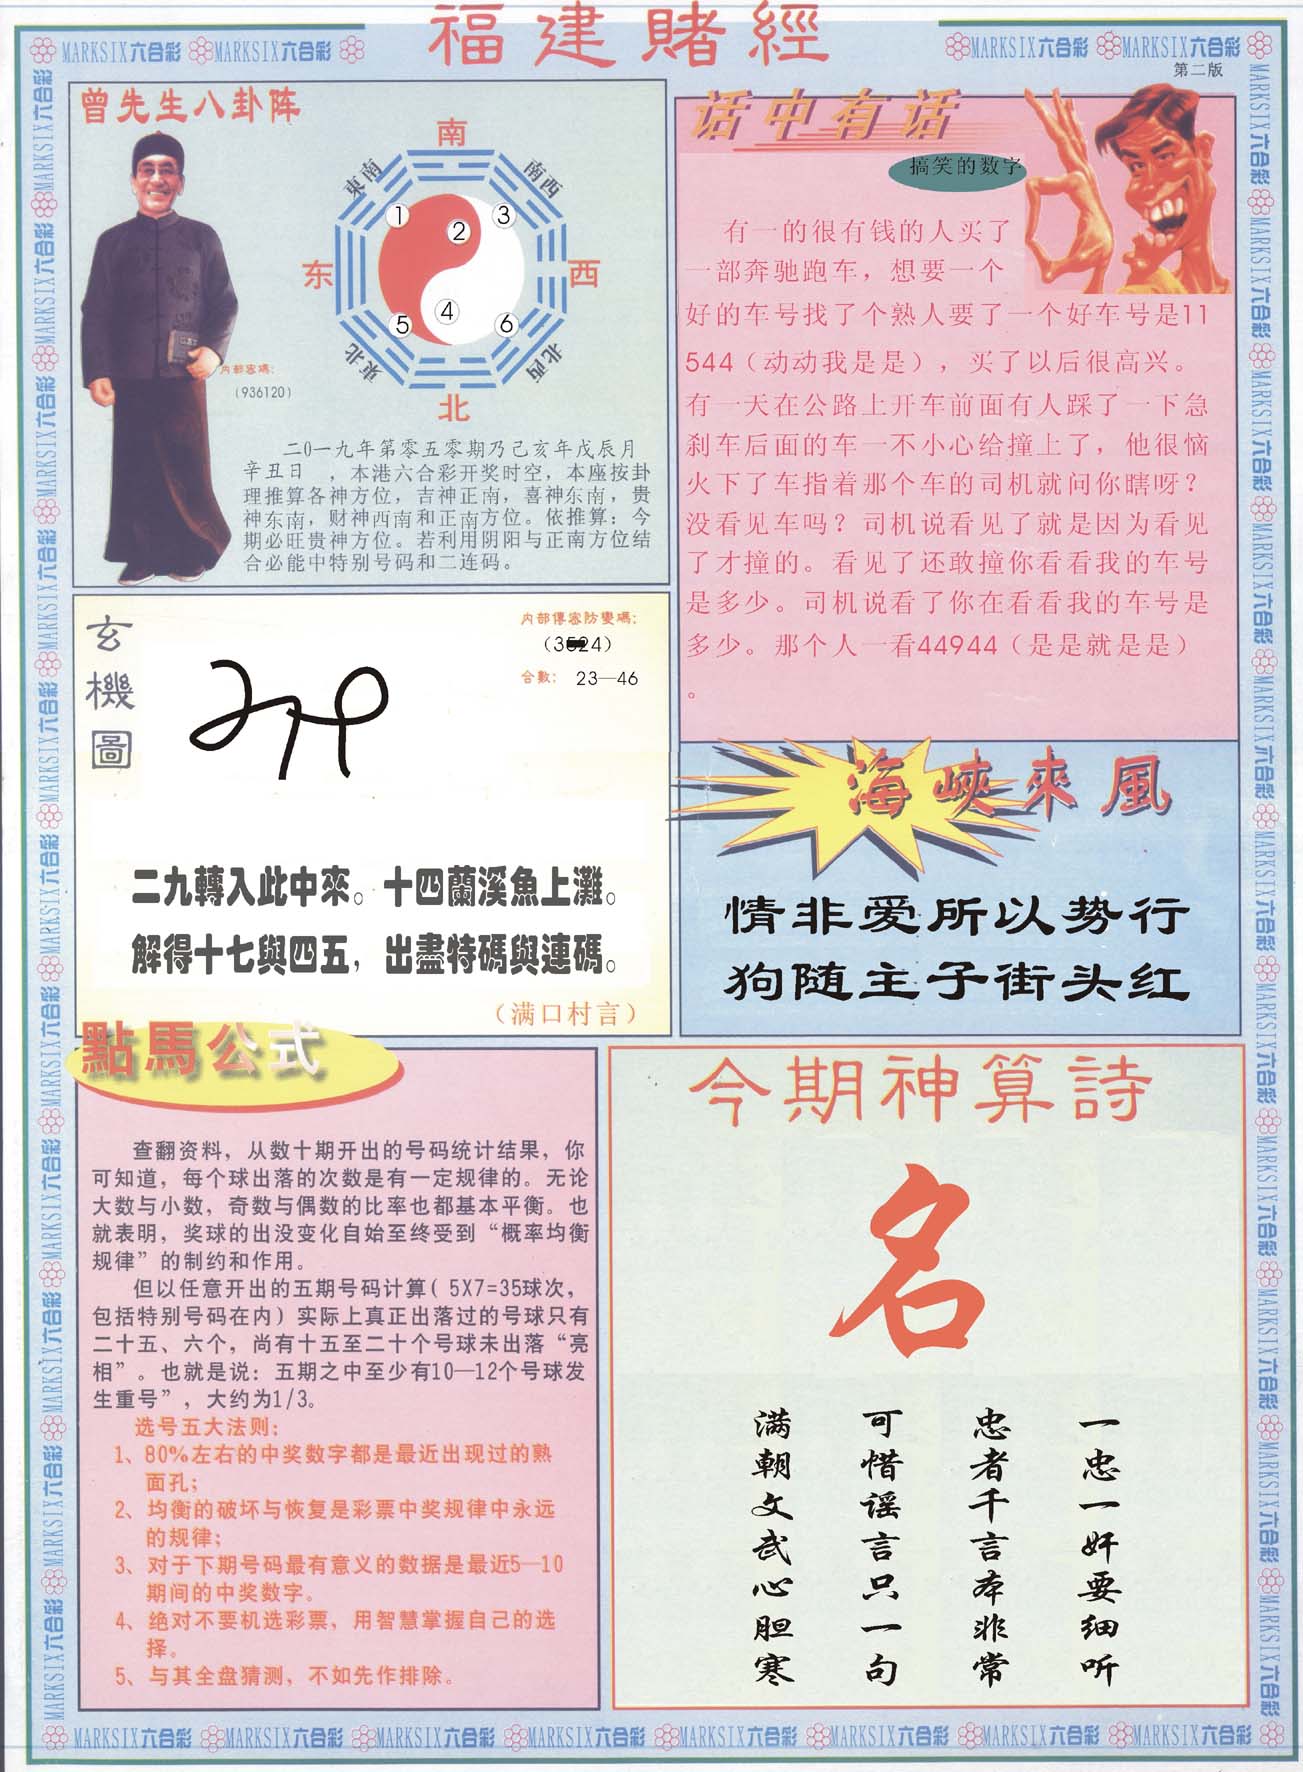 福建賭經
MARKSIX六合彩 MARKSIX六合彩
MARKSIX六合彩 MARKSIX六合彩
第二版
曾先生八卦阵
南
東南
南西
1
2
3
东
西
4
5
6
東北
北西
北
内部密碼:
(936120)
二0一九年第零五零期乃己亥年戊辰月
辛丑日 ，本港六合彩开奖时空，本座按卦
理推算各神方位，吉神正南，喜神东南，贵
神东南，财神西南和正南方位。依推算：今
期必旺贵神方位。若利用阴阳与正南方位结
合必能中特别号码和二连码。
话中有话
搞笑的数字
有一的很有钱的人买了
一部奔驰跑车，想要一个
好的车号找了个熟人要了一个好车号是11
544（动动我是是），买了以后很高兴。
有一天在公路上开车前面有人踩了一下急
刹车后面的车一不小心给撞上了，他很恼
火下了车指着那个车的司机就问你瞎呀？
没看见车吗？司机说看见了就是因为看见
了才撞的。看见了还敢撞你看看我的车号
是多少。司机说看了你在看看我的车号是
多少。那个人一看44944（是是就是是）
。
玄機圖
内部傳密防變碼:
合數: 23—46
二九轉入此中來。十四蘭溪魚上灘。
解得十七與四五，出盡特碼與連碼。
（满口村言）
海峽來風
情非爱所以势行
狗随主子街头红
點馬公式
查翻资料，从数十期开出的号码统计结果，你
可知道，每个球出落的次数是有一定规律的。无论
大数与小数，奇数与偶数的比率也都基本平衡。也
就表明，奖球的出没变化自始至终受到“概率均衡
规律”的制约和作用。
但以任意开出的五期号码计算( 5X7=35球次，
包括特别号码在内）实际上真正出落过的号球只有
二十五、六个，尚有十五至二十个号球未出落“亮
相”。也就是说：五期之中至少有10—12个号球发
生重号”，大约为1/3。
选号五大法则：
1、80%左右的中奖数字都是最近出现过的熟
面孔；
2、均衡的破坏与恢复是彩票中奖规律中永远
的规律；
3、对于下期号码最有意义的数据是最近5—10
期间的中奖数字。
4、绝对不要机选彩票，用智慧掌握自己的选
择。
5、与其全盘猜测，不如先作排除。
今期神算詩
名
一忠一奸要细听
忠者千言本非常
可惜谣言只一句
满朝文武心胆寒
MARKSIX六合彩 MARKSIX六合彩 MARKSIX六合彩 MARKSIX六合彩 MARKSIX六合彩 MARKSIX六合彩 MARKSIX六合彩 MARKSIX六合彩